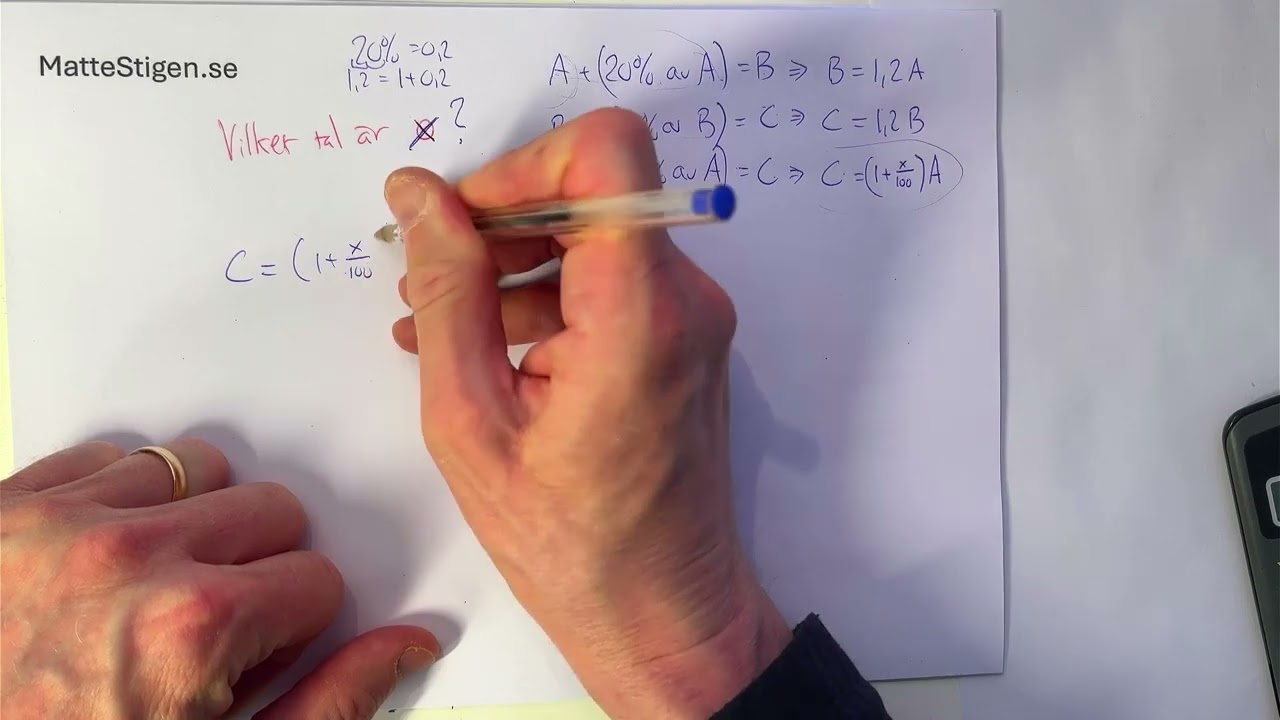 MatteStigen.se
20% = 0,2
1,2 = 1 + 0,2
Vilket tal är x?
A + (20% av A) = B ⇒ B = 1,2 A
av B) = C ⇒ C = 1,2 B
av A) = C ⇒ C = (1 + x/100) A
C = (1 + x/100